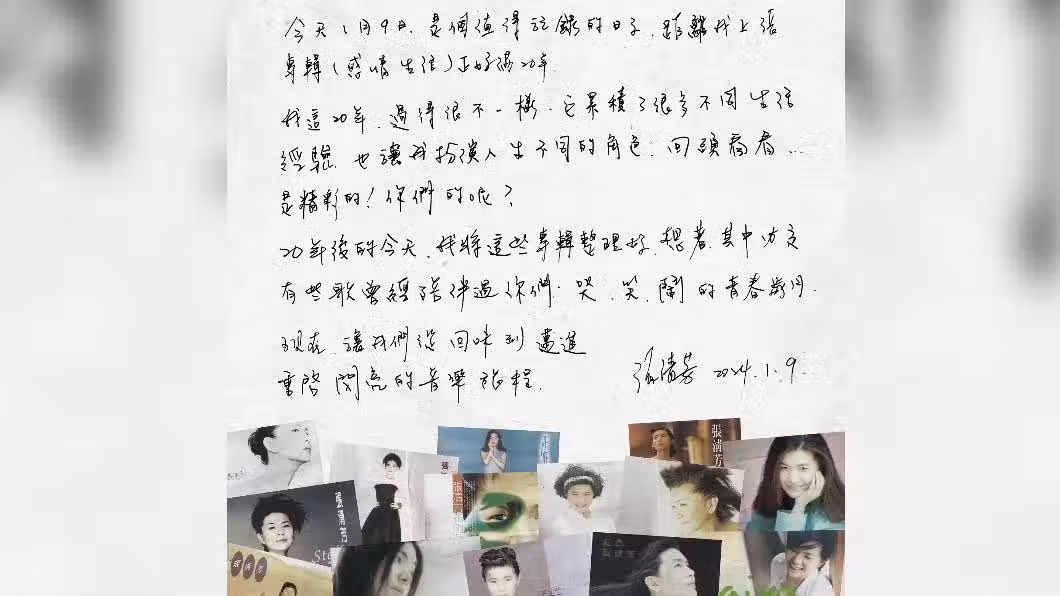 今天1月9日. 是個值得記錄的日子. 距離我上張
專輯(感情生活)正好滿20年.
我這20年. 過得很不一樣. 它累積了很多不同生活
經驗. 也讓我扮演人生不同的角色. 回頭看看...
是精彩的! 你們的呢?
20年後的今天. 我將這些專輯整理好. 想著. 其中
有些歌曾經陪伴過你們. 哭. 笑. 鬧的青春歲月.
現在. 讓我們從回味到邁進
重啓閃亮的音樂旅程.
張清芳 2024.1.9
張清芳
張清芳
張清芳
張清芳
紅色
張清芳